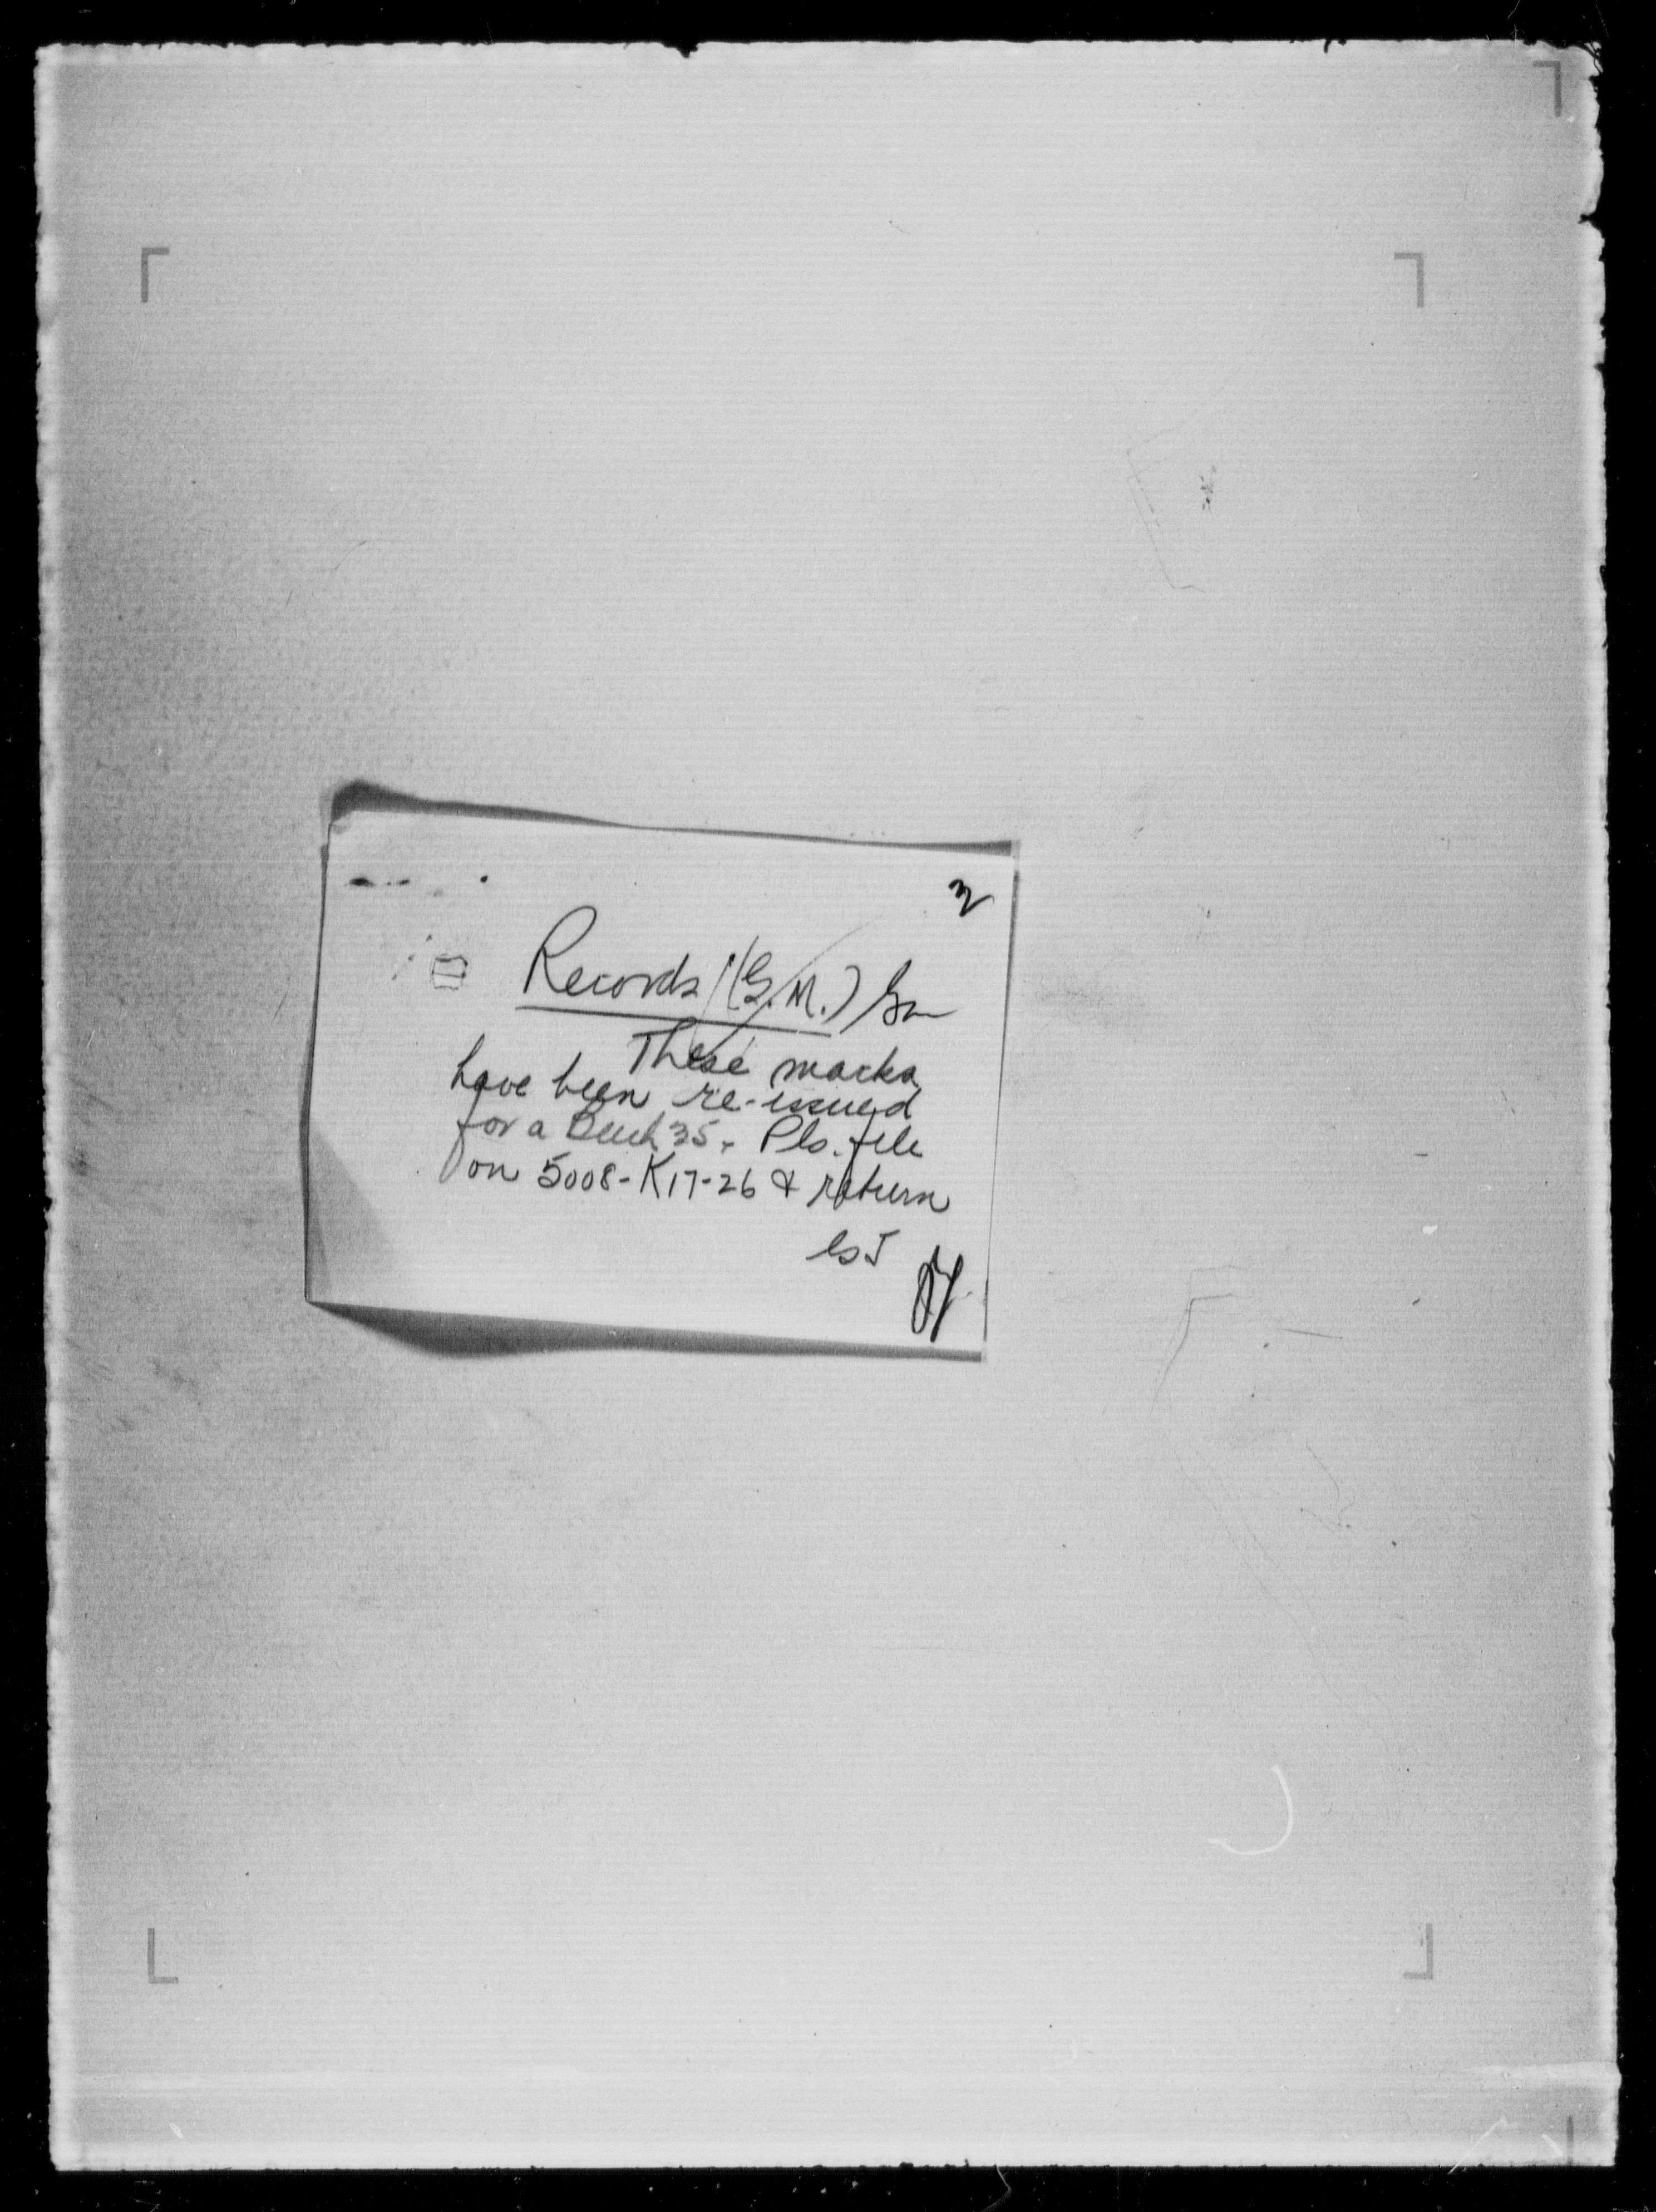 2
Records (G.M.)
These marks
have been re-issued
for a Beech 35. Pls. file
on 5008-K17-26 & return